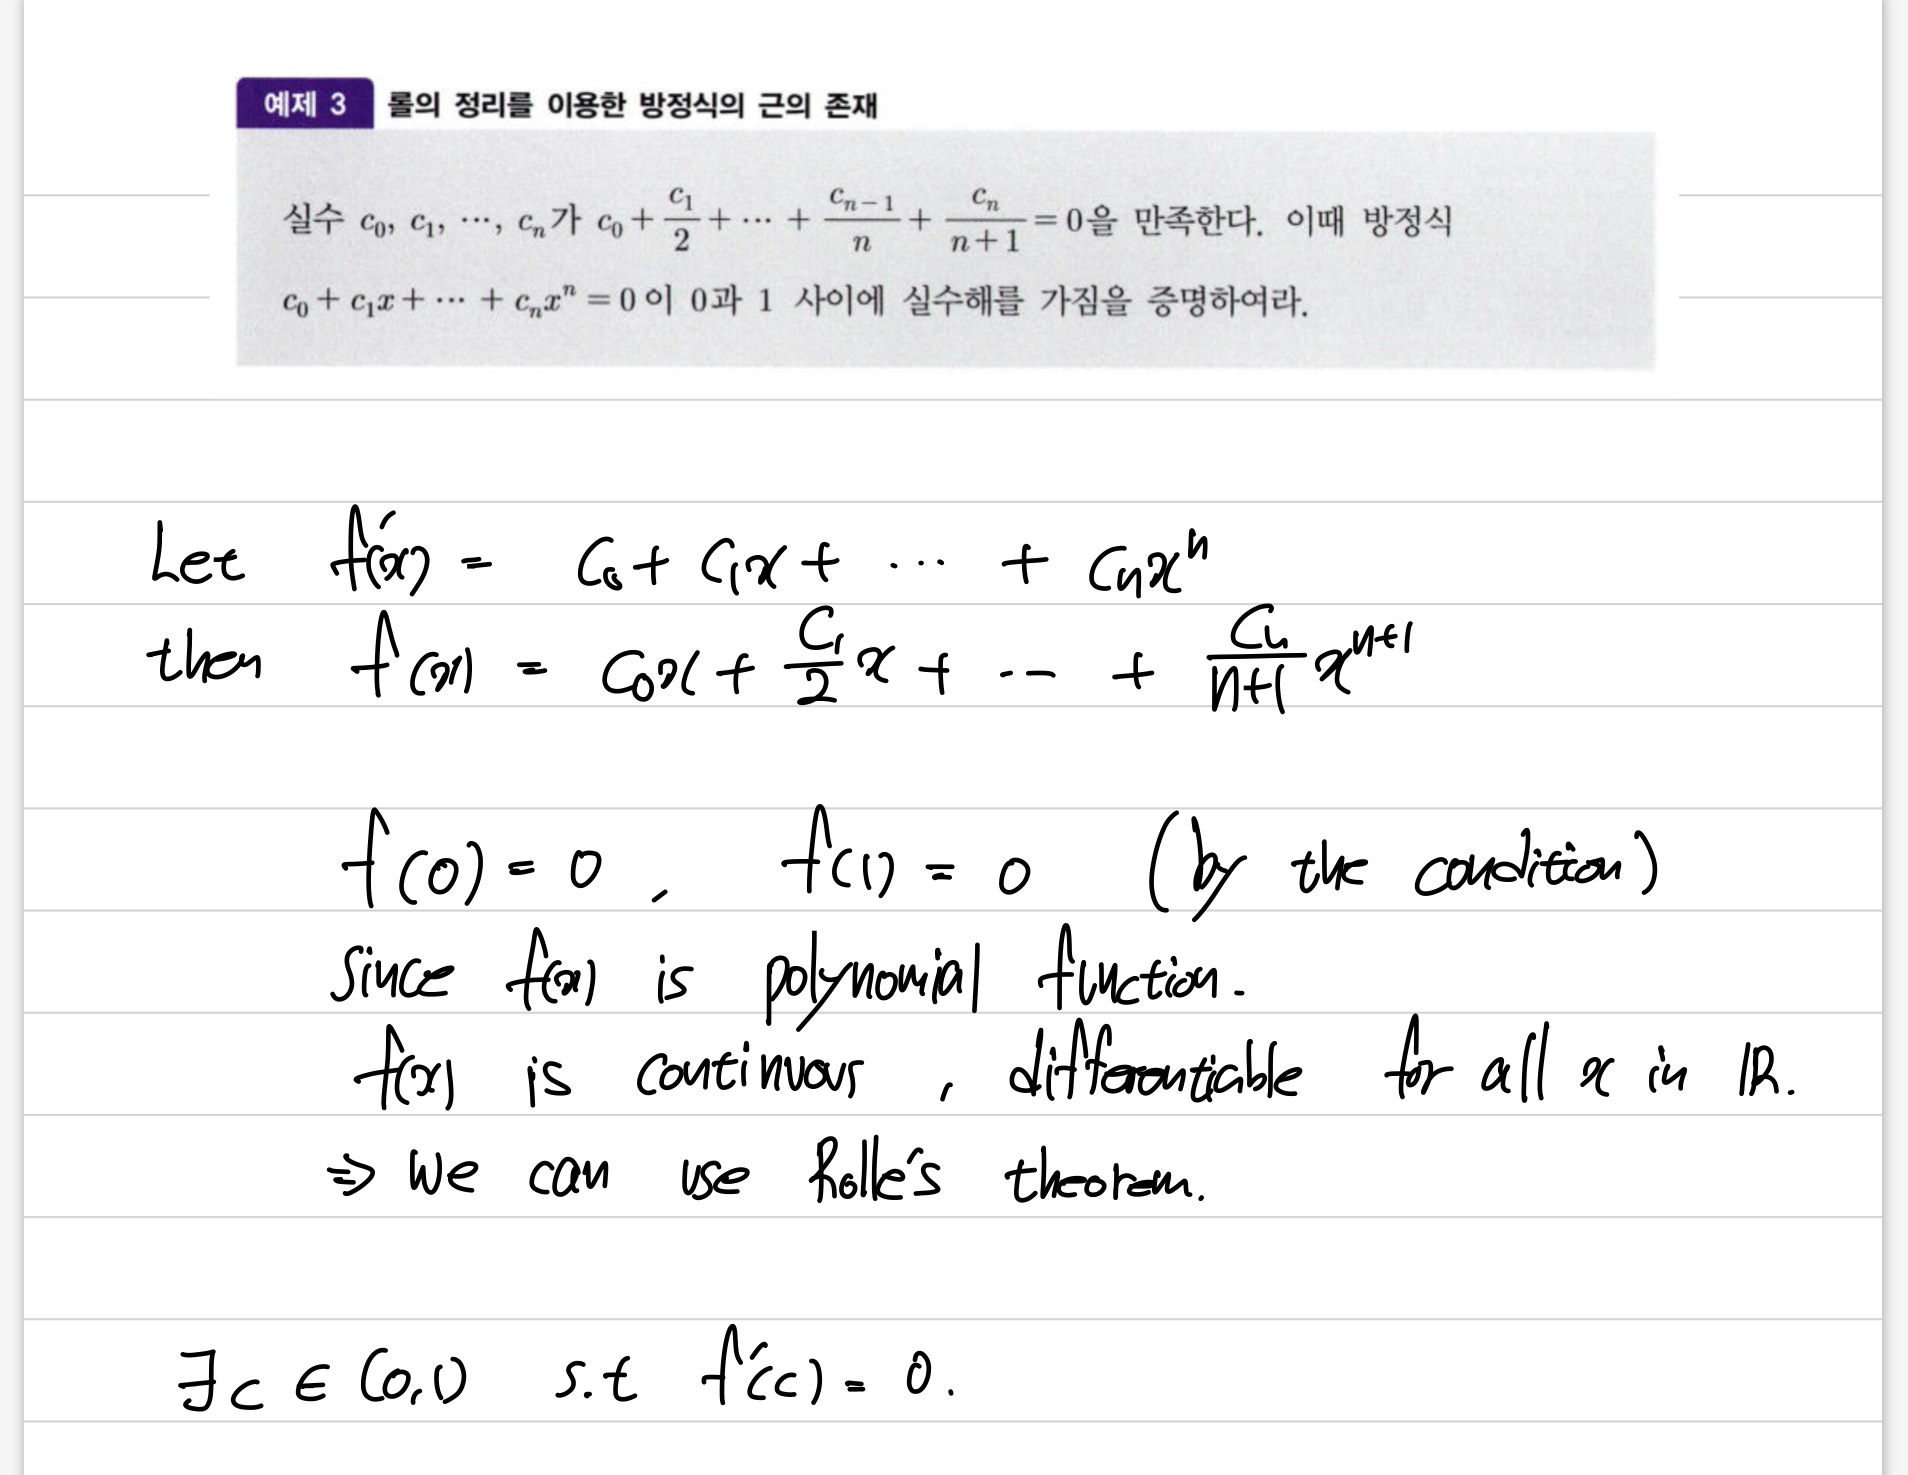 예제 3 롤의 정리를 이용한 방정식의 근의 존재
실수 c₀, c₁, ⋯, cₙ가 c₀ + c₁/2 + ⋯ + cₙ₋₁/n + cₙ/(n+1) = 0을 만족한다. 이때 방정식
c₀ + c₁x + ⋯ + cₙxⁿ = 0이 0과 1 사이에 실수해를 가짐을 증명하여라.
Let f′(x) = C₀ + C₁x + ⋯ + Cₙxⁿ
then f(x) = C₀x + C₁/2 x + ⋯ + Cₙ/(n+1) xⁿ⁺¹
f(0) = 0, f(1) = 0 (by the condition)
Since f(x) is polynomial function.
f(x) is continuous, differentiable for all x in ℝ.
⇒ We can use Rolle's theorem.
∃c ∈ (0,1) s.t f′(c) = 0.